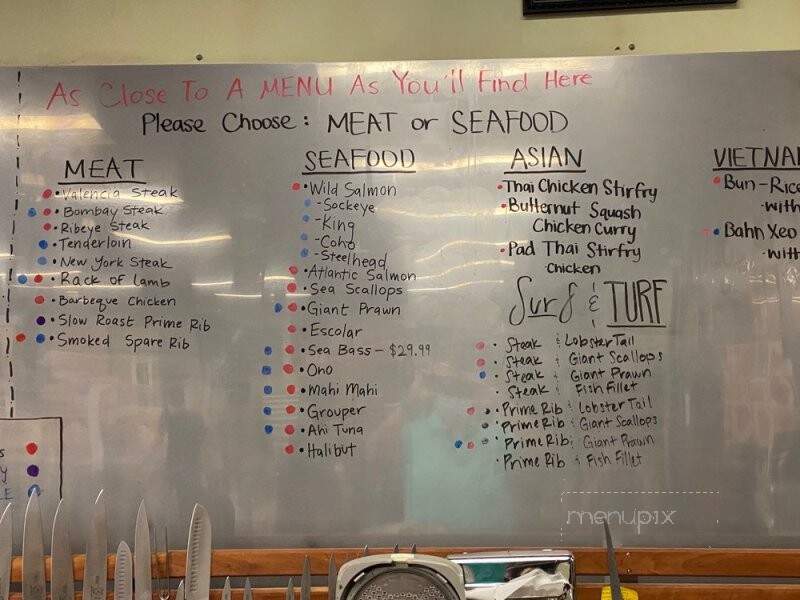 As Close To A MENU As You'll Find Here
Please Choose: MEAT or SEAFOOD
MEAT
• Valencia Steak
• Bombay Steak
• Ribeye Steak
• Tenderloin
• New York Steak
• Rack of Lamb
• Barbeque Chicken
• Slow Roast Prime Rib
• Smoked Spare Rib
SEAFOOD
• Wild Salmon
- Sockeye
- King
- Coho
- Steelhead
• Atlantic Salmon
• Sea Scallops
• Giant Prawn
• Escolar
• Sea Bass - $29.99
• Ono
• Mahi Mahi
• Grouper
• Ahi Tuna
• Halibut
ASIAN
• Thai Chicken Stirfry
• Butternut Squash
Chicken Curry
• Pad Thai Stirfry
Chicken
Surf & TURF
• Steak & Lobster Tail
• Steak & Giant Scallops
• Steak & Giant Prawn
• Steak & Fish Fillet
• Prime Rib & Lobster Tail
• Prime Rib & Giant Scallops
• Prime Rib & Giant Prawn
• Prime Rib & Fish Fillet
VIETNA
• Bun-Rice
with
• Bahn Xeo
with
menupix